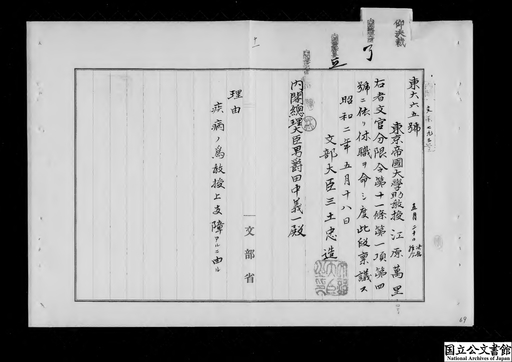 御決裁
了
東大六五號
東京帝國大學助教授 江原萬里
右者文官分限令第十一條第一項第四
號ニ依リ休職ヲ命シ度此段稟議ス
昭和二年五月十八日
文部大臣三土忠造
內閣總理大臣男爵田中義一殿
理由
疾病ノ為教授上支障アルニ由ル
文部省
69
国立公文書館
National Archives of Japan